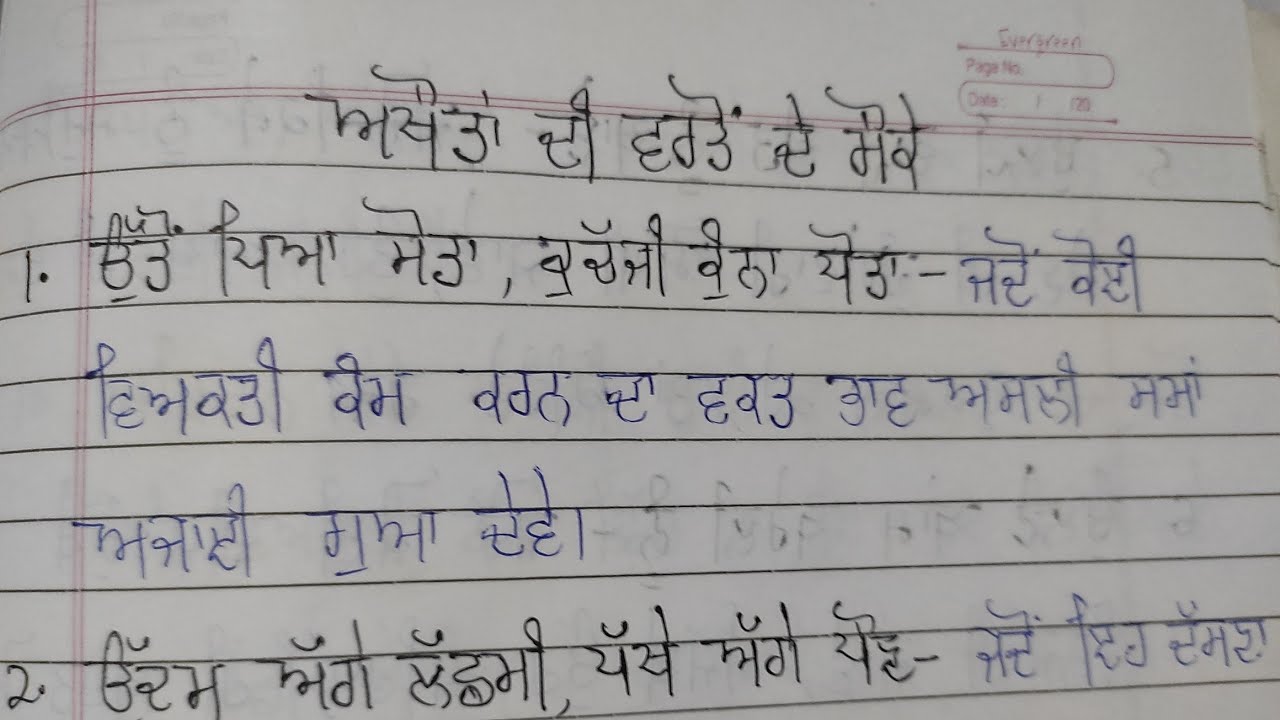 Evergreen
Page No.
Date: / /20
ਅਖੌਤਾਂ ਦੀ ਵਰਤੋਂ ਦੇ ਮੌਕੇ
1. ਪਿਆ ਸੋਤਾ, ਕੁਚੱਜੀ ਕੁੰਨਾ ਧੋਤਾ - ਜਦੋਂ ਕੋਈ
ਵਿਅਕਤੀ ਕੰਮ ਕਰਨ ਦਾ ਵਕਤ ਭਾਵ ਅਸਲੀ ਸਮਾਂ
ਅਜਾਈ ਗੁਆ ਦੇਵੇ।
2. ਉੱਦਮ ਅੱਗੇ ਲੱਛਮੀ, ਪੱਖੇ ਅੱਗੇ ਪੌਣ - ਜਦੋਂ ਇਹ ਦੱਸਣਾ